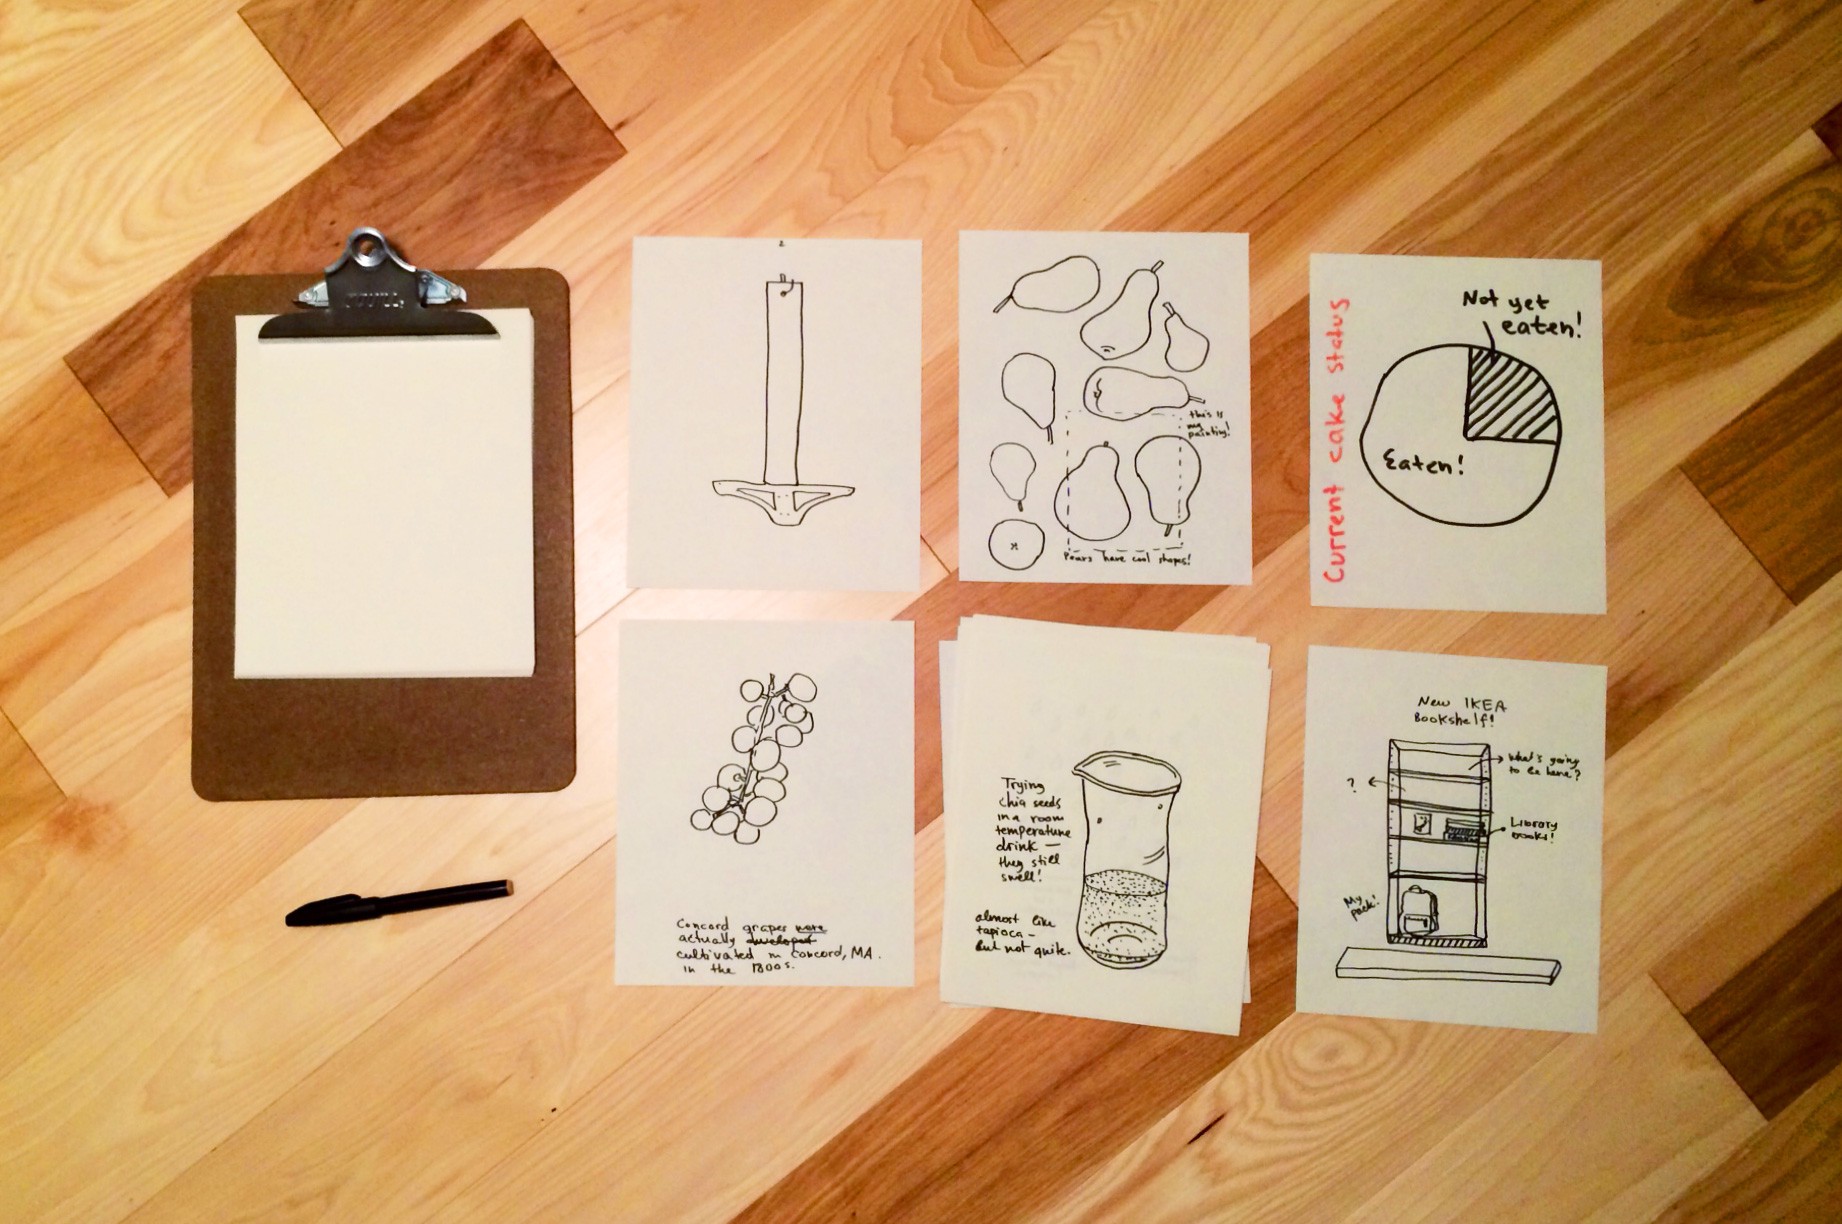 2
this is
my
painting!
Pears have cool shapes!
Current cake status
Not yet
eaten!
Eaten!
Concord grapes were
actually developed
cultivated in Concord, MA.
in the 1800s.
Trying
chia seeds
in a room
temperature
drink —
they still
swell!
almost like
tapioca –
but not quite.
New IKEA
Bookshelf!
What's going
to be here?
?
Library
books!
My
pack!